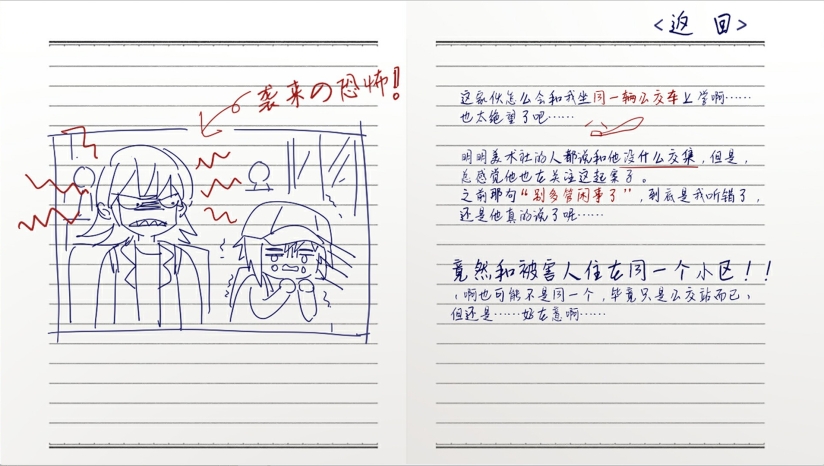 袭来の恐怖!
<返 回>
这家伙怎么会和我坐同一辆公交车上学啊……
也太绝望了吧……
明明美术社的人都说和他没什么交集,但是,
总感觉他也在关注这起案子。
之前那句“别多管闲事了”,到底是我听错了,
还是他真的说了呢……
竟然和被害人住在同一个小区!!
,啊也可能不是同一个,毕竟只是公交站而已,
但还是……好在意啊……